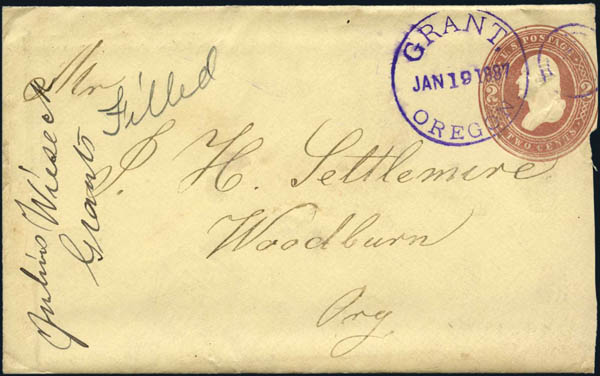 GRANT.
JAN 19 1887
OREGON
U.S. POSTAGE
2 2
TWO CENTS
Mr
J. H. Settlemire
Woodburn
Org
Julius Wieseck
Grants Filled